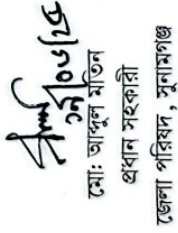 মো: আব্দুল মতিন
প্রধান সহকারী
জেলা পরিষদ, সুনামগঞ্জ